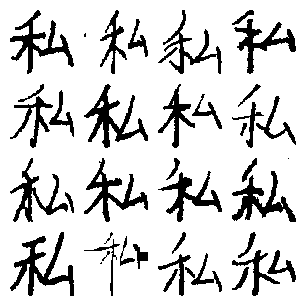 私私私私
私私私私
私私私私
私私私私